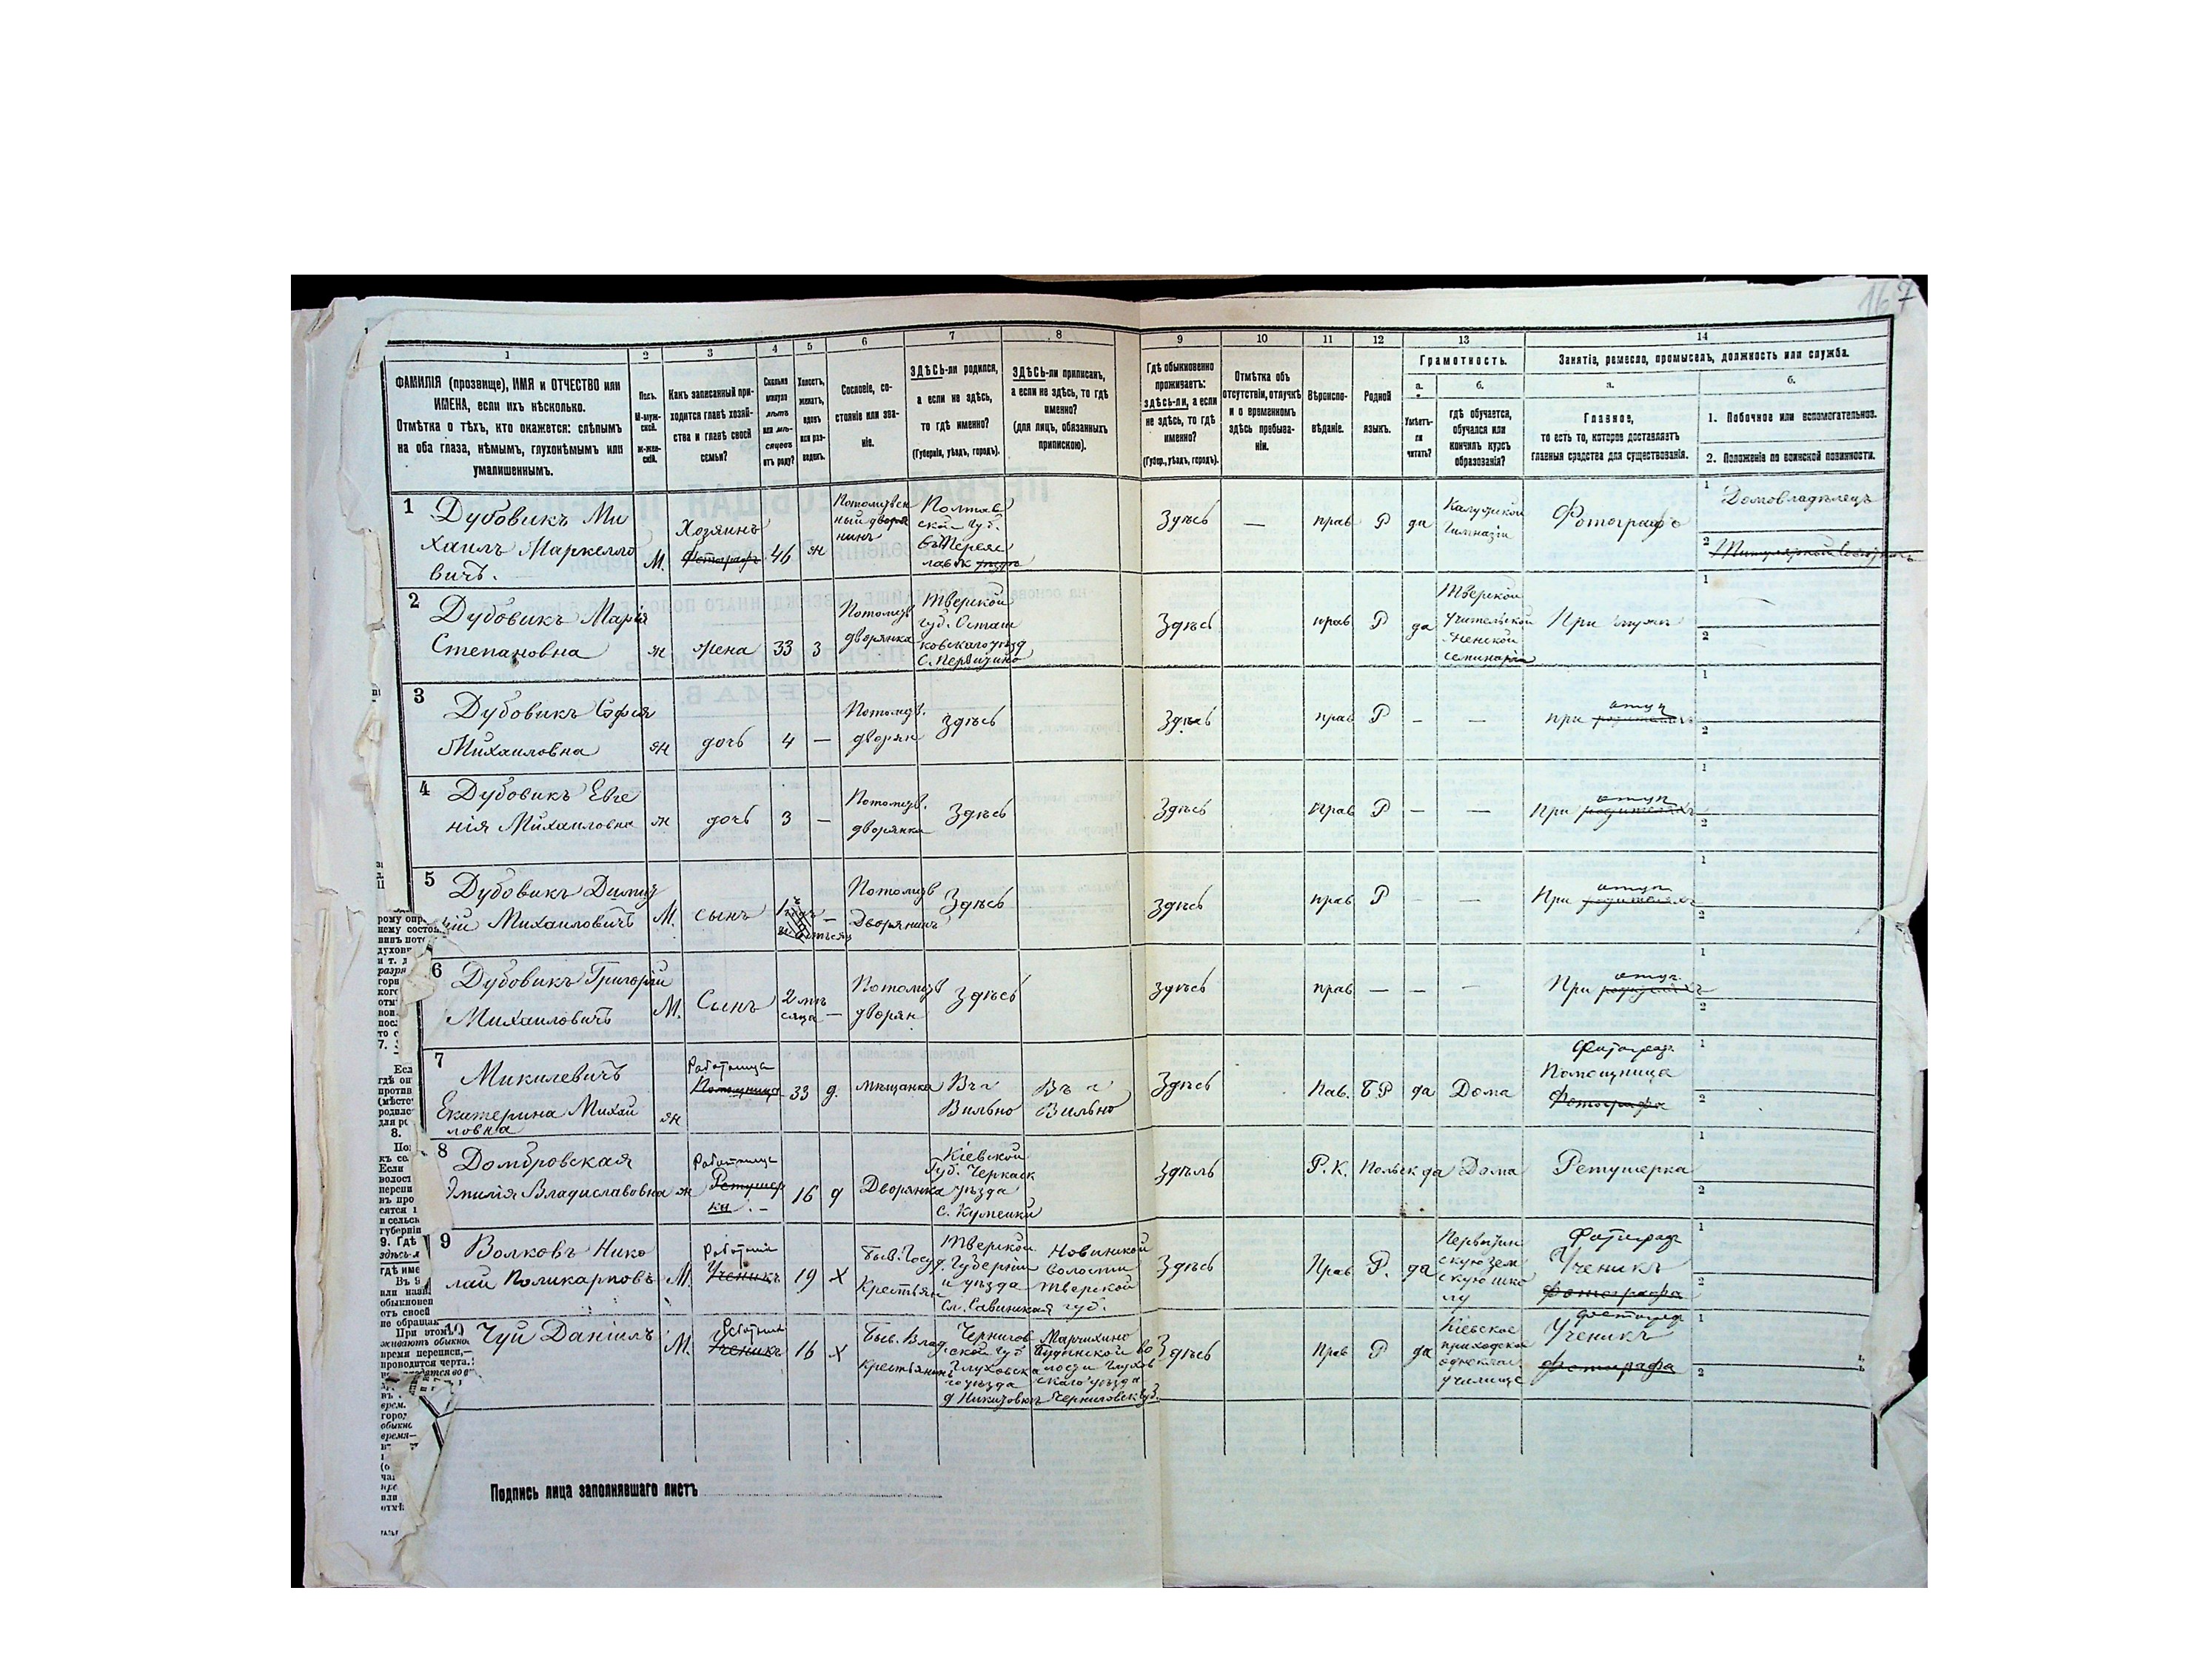 167
1
2
3
4
5
6
7
8
9
10
11
12
13
14
ФАМИЛІЯ (прозвище), ИМЯ и ОТЧЕСТВО или
ИМЕНА, если ихъ нѣсколько.
Отмѣтка о тѣхъ, кто окажется: слѣпымъ
на оба глаза, нѣмымъ, глухонѣмымъ или
умалишеннымъ.
Полъ.
М-муж-
ской.
ж-жен-
скій.
Какъ записанный при-
ходится главѣ хозяй-
ства и главѣ своей
семьи?
Сколько
минуло
лѣтъ
или мѣ-
сяцевъ
отъ роду?
Холостъ,
женатъ,
вдовъ
или раз-
веденъ.
Сословіе, со-
стояніе или зва-
ніе.
ЗДѢСЬ-ли родился,
а если не здѣсь,
то гдѣ именно?
(Губернія, уѣздъ, городъ).
ЗДѢСЬ-ли приписанъ,
а если не здѣсь, то гдѣ
именно?
(для лицъ, обязанныхъ
припискою).
Гдѣ обыкновенно
проживаетъ:
здѣсь-ли, а если
не здѣсь, то гдѣ
именно?
(Губер., уѣздъ, городъ).
Отмѣтка объ
отсутствіи, отлучкѣ
и о временномъ
здѣсь пребыва-
ніи.
Вѣроиспо-
вѣданіе.
Родной
языкъ.
Грамотность.
а.
Умѣетъ-
ли
читать?
б.
гдѣ обучается,
обучался или
кончилъ курсъ
образованія?
Занятія, ремесло, промыселъ, должность или служба.
а.
Главное,
то есть то, которое доставляетъ
главныя средства для существованія.
б.
1. Побочное или вспомогательное.
2. Положеніе по воинской повинности.
1
Дубовикъ Ми
хаилъ Маркелло
вичъ.
М.
Хозяинъ
Фотографъ
46
ж
Потомствен
ный дворя
нинъ
Полтав
ской губ.
въ Переяс
лавск уѣздѣ
Здѣсь
—
прав
Р
да
Калужской
Гимназіи
Фотографъ
1 Домовладѣлецъ
2
2
Дубовикъ Марія
Степановна
ж
Жена
33
З
Потомств
дворянка
Тверской
губ. Осташ
ковскаго уѣзд
Здѣсь
прав
Р
да
Тверской
учительской
женской
семинаріи
При мужѣ
3
Дубовикъ Софія
Михаиловна
ж
дочь
4
—
Потомств.
дворян
Здѣсь
Здѣсь
прав
Р
-
—
при отцѣ
родителяхъ
4
Дубовикъ Евге
нія Михаиловна
ж
дочь
3
—
Потомств.
дворянка
Здѣсь
Здѣсь
Прав
Р
—
—
При отцѣ
родителяхъ
5
Дубовикъ Димит
рій Михаиловичъ
М.
сынъ
1
—
Потомств
Дворянинъ
Здѣсь
Здѣсь
прав
Р
-
—
При отцѣ
родителяхъ
6
Дубовикъ Григорій
Михаиловичъ
М.
Сынъ
2 мѣ
сяца
—
Потомств
дворян
Здѣсь
Здѣсь
прав
—
—
—
При отцѣ
родителяхъ
7
Микилевичъ
Екатерина Михаи
ловна
ж
Работница
Помощница
33
д.
мѣщанка
Въ г
Вильно
Въ г
Вильно
Здѣсь
Пав.
БР
да
Дома
Фотограф.
Помощница
Фотографа
8
Домбровская
Эмилія Владиславовна
ж
Работница
Ретушер
ка
16
д
Дворянка
Кіевской
Губ. Черкаск
уѣзда
Здѣсь
Р.К.
Польск
да
Дома
Ретушерка
9
Волковъ Нико
лай Поликарповъ
М.
Работник
Ученикъ
19
Х
Быв. Госуд.
Крестьян
Тверской
Губерніи
и уѣзда
Волости
Тверской
губ.
Здѣсь
Прав
Р.
да
скую зем
скую шко
лу
Фотограф
Ученикъ
фотографа
10
Чуй Даніилъ
М.
Работник
Ученикъ
16
Х
Быв. Влад
Крестьянинъ
Чернигов
ской губ
Глуховска
го уѣзда
Марчихино
Будинской во
лости Глухов
скаго уѣзда
Черниговск губ.
Здѣсь
Прав
Р
да
Кіевское
приходское
однокласс
училище
фотограф
Ученикъ
фотографа
Подпись лица заполнявшаго листъ